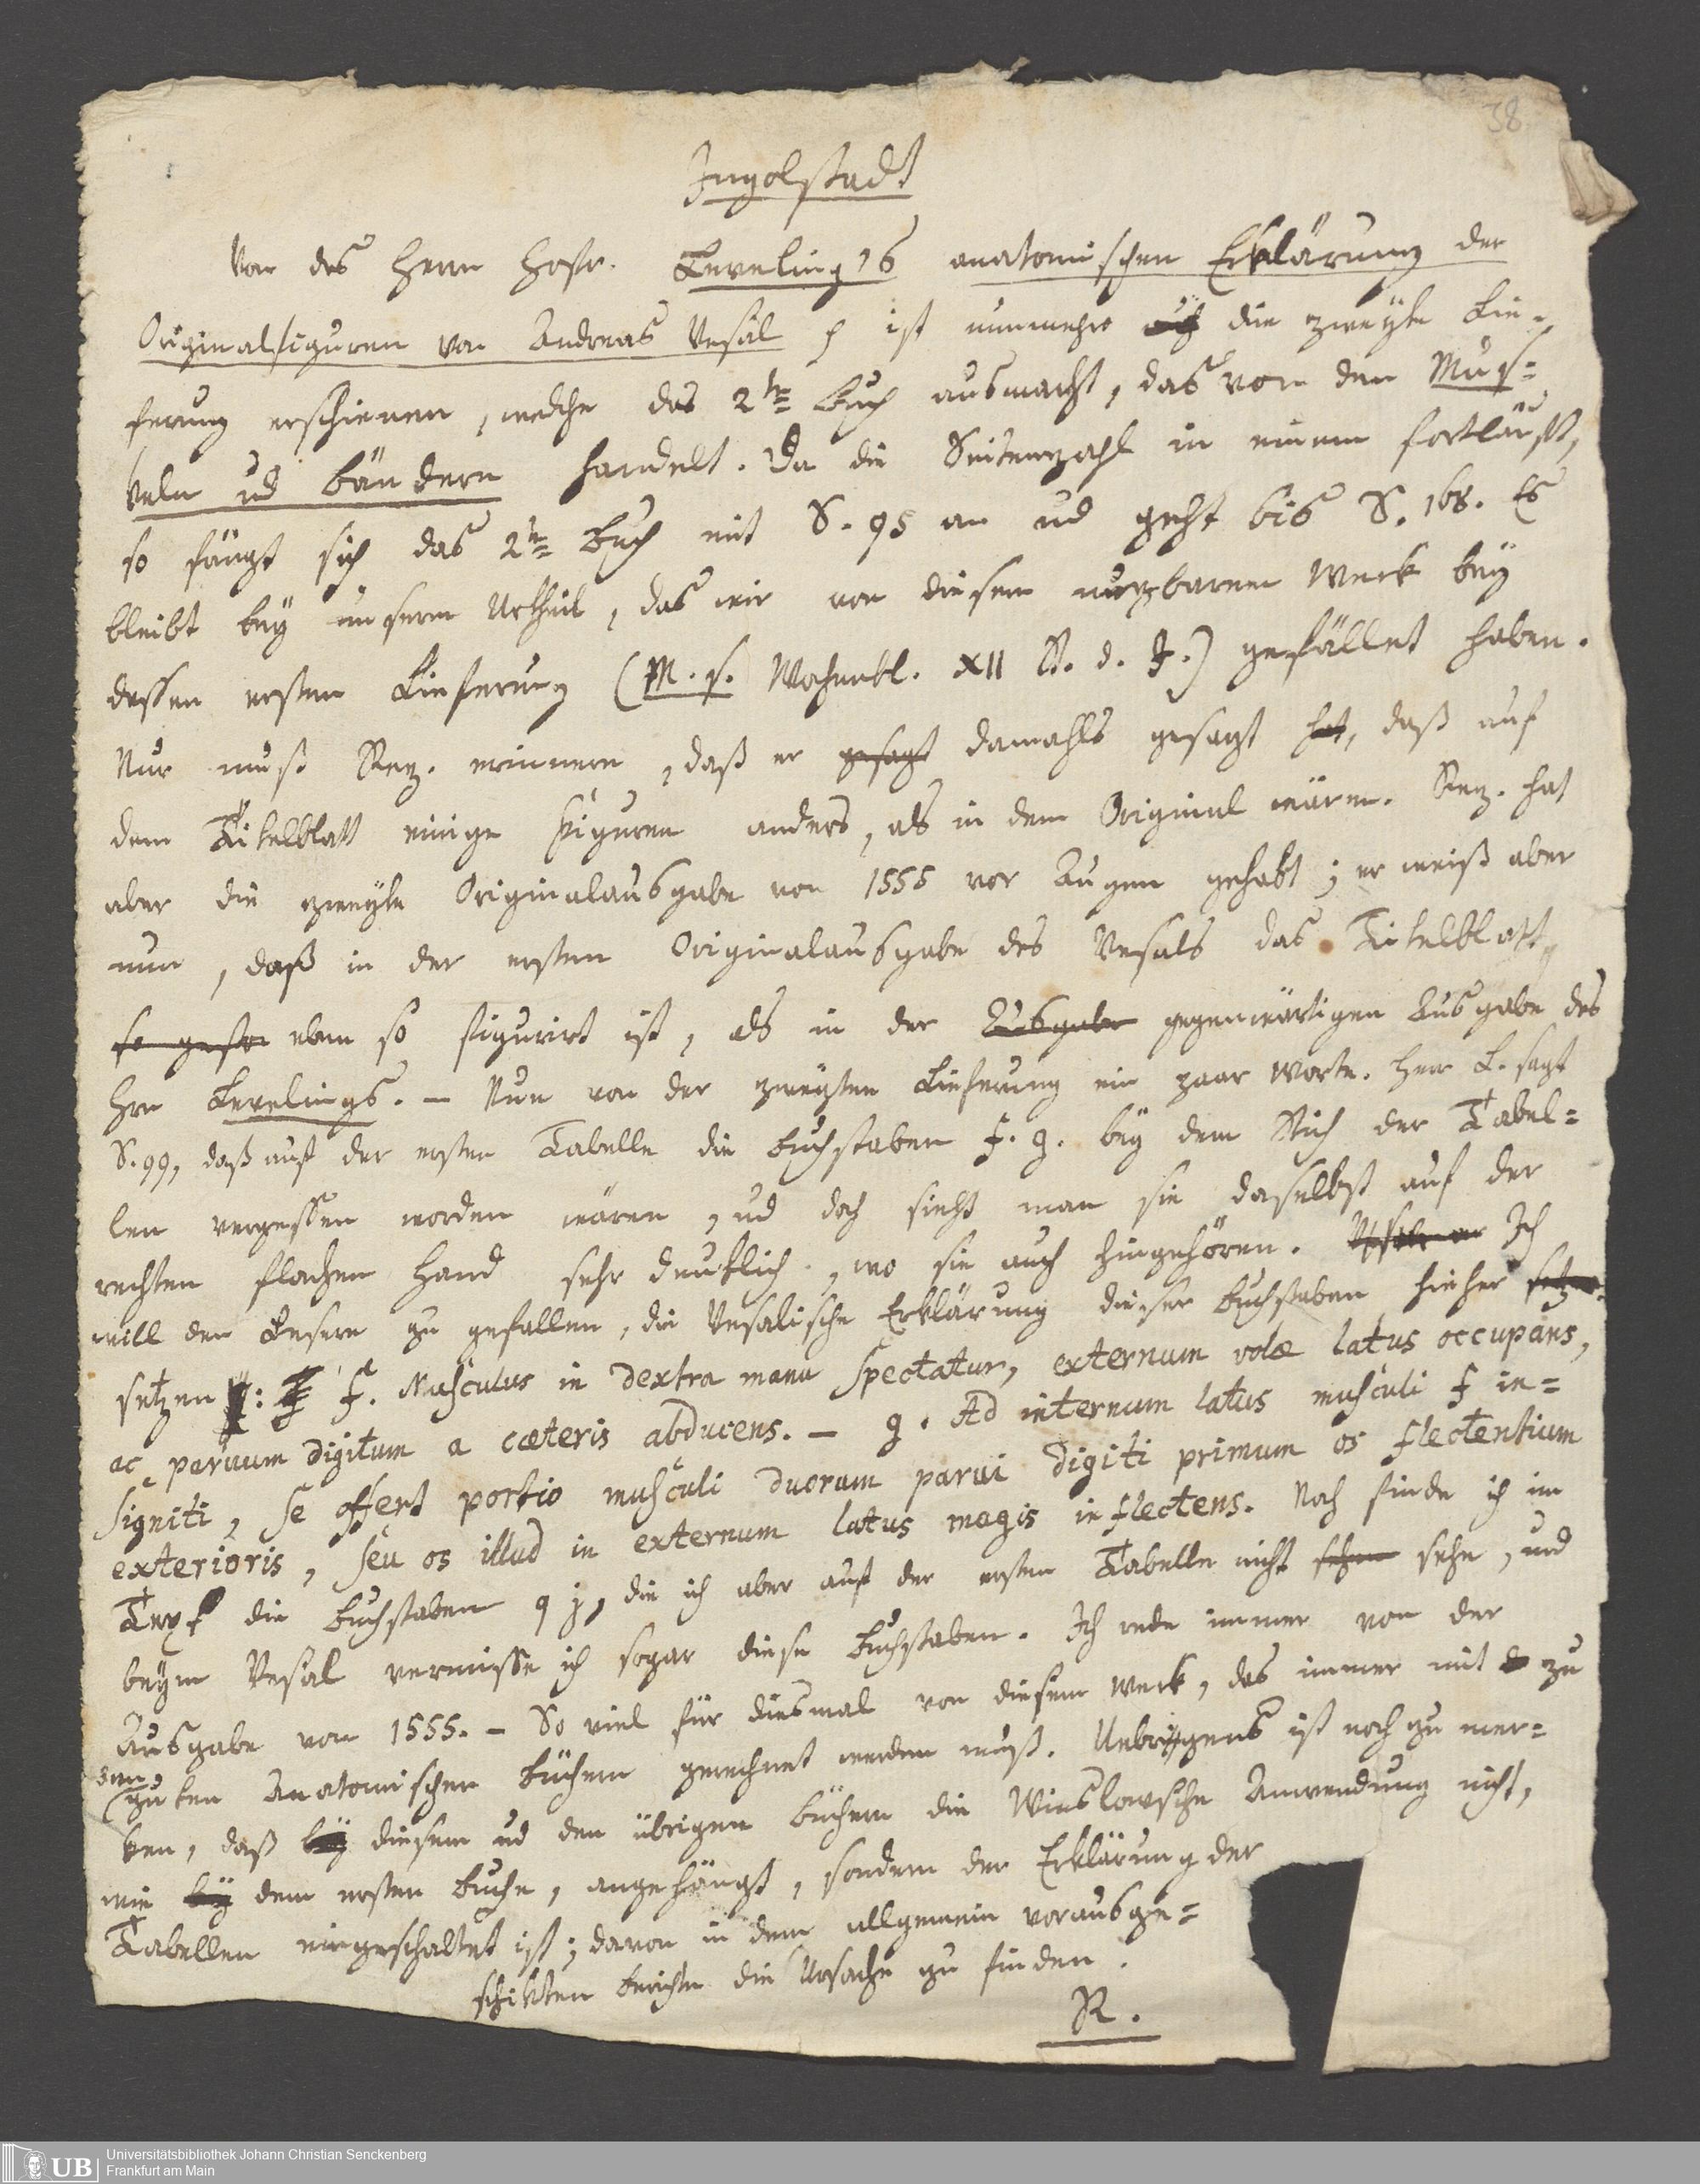 38
Ingolstadt
Von des Herrn Hofr. Leveling's anatomischen Erklärung der
Originalfiguren von Andreas Vesal ist nunmehr auch die zweyte Lie-
ferung erschienen, welche das 2te Buch ausmacht, das von den Mus-
keln und Bändern handelt. Da die Seitenzahl in einem fortläuft,
so fängt sich das 2te Buch mit S. 95 an und geht bis S. 168. Es
bleibt bey unserm Urtheil, das wir von diesem nuzbaren Werk bey
dessen ersten Lieferung (M. s. Wochenbl. XII St. d. J.) gefället haben.
Nur muß Rez. erinnern, daß er gesagt damahls gesagt hat, daß auf
dem Titelblatt einige Figuren anders, als in dem Original wären. Rez. hat
aber die zweyte Originalausgabe von 1555 vor Augen gehabt; er weiß aber
nun, daß in der ersten Originalausgabe des Vesals das Titelblatt
eben so figurirt ist, als in der Ausgabe gegenwärtigen Ausgabe des
Hrn Levelings. – Nun von der zweyten Lieferung ein paar Worte. Herr L. sagt
S. 99, daß auf der ersten Tabelle die Buchstaben f. g. bey dem Stich der Tabel=
len vergessen worden wären, und doch sieht man sie daselbst auf der
rechten flachen Hand sehr deutlich, wo sie auch hingehören. Ich
will den Lesern zu gefallen, die Vesalische Erklärung dieser Buchstaben hieher setzen
setzen: f. Musculus in dextra manu spectatur, externum volæ latus occupans,
ac parvum digitum a cæteris abducens. – g. Ad internum latus musculi f in=
signiti, se offert portio musculi duorum parvi digiti primum os flectentium
exterioris, seu os illud in externum latus magis inflectens. Noch finde ich im
Text die Buchstaben q j, die ich aber auf der ersten Tabelle nicht sehen sehe, und
beym Vesal vermisse ich sogar diese Buchstaben. Ich rede immer von der
Ausgabe von 1555. – So viel für diesmal von diesem Werk, das immer mit zu
den
guten Anatomischen Büchern gerechnet werden muß. Uebrigens ist noch zu mer=
ken, daß bey diesem und den übrigen Büchern die Winslowsche Anwendung nicht,
wie bey dem ersten Buche, angehängt, sondern der Erklärung der
Tabellen eingeschaltet ist; davon in dem allgemein vorausge=
schikten Berichte die Ursache zu finden.
R.
UB Universitätsbibliothek Johann Christian Senckenberg
Frankfurt am Main